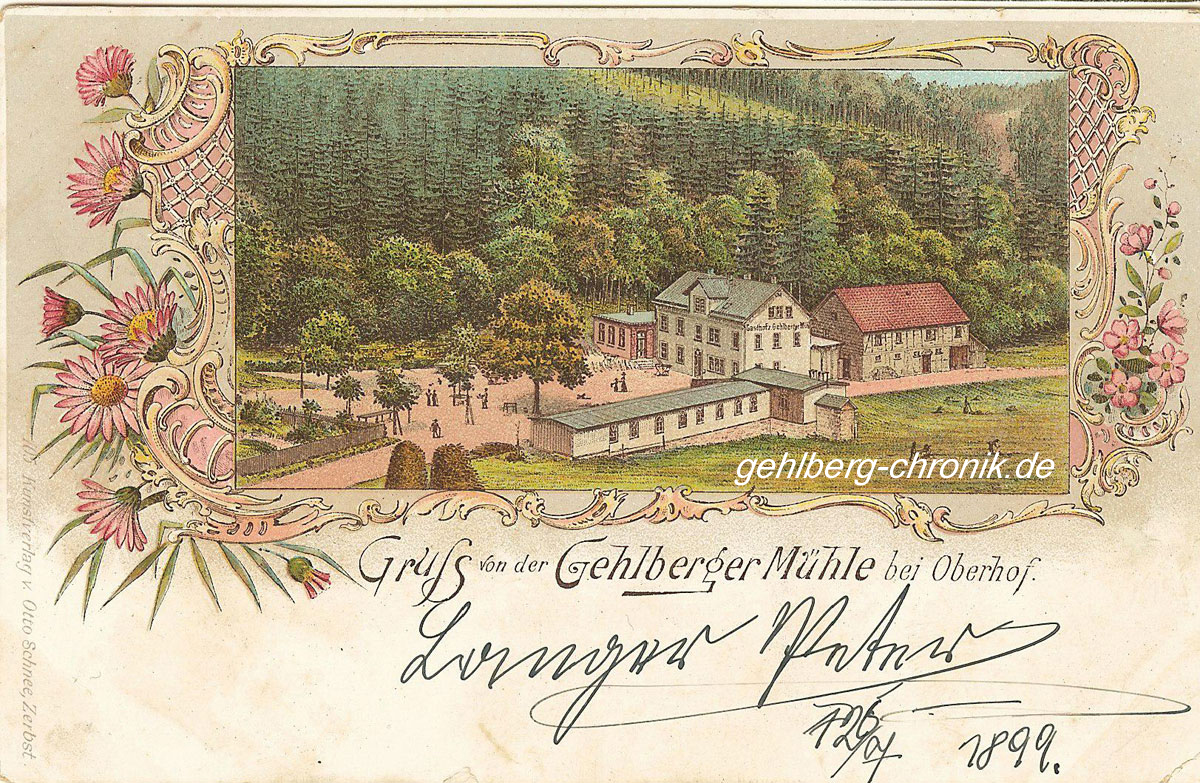 Gasthof z. Gehlberger Mühle
gehlberg-chronik.de
Gruss von der Gehlberger Mühle bei Oberhof.
Langer Peter
26/7 1899.
Kunstverlag v. Otto Schnee, Zerbst.